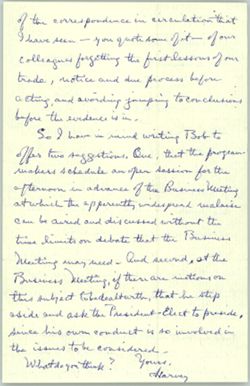 of the correspondence in circulation that
I have seen — you quote some of it — of our
colleagues forgetting the first lessons of our
trade, notice and due process before
acting, and avoiding jumping to conclusions
before the evidence is in.
So I have in mind writing Bob to
offer two suggestions. One, that the program-
makers schedule an open session for the
afternoon in advance of the Business Meeting
at which the apparently widespread malaise
can be aired and discussed without the
time limits on debate that the Business
Meeting may need. And second, at the
Business Meeting, if there are motions on
this subject to be dealt with, that he step
aside and ask the President-Elect to preside,
since his own conduct is so involved in
the issues to be considered.
What do you think? Yours,
Harvey